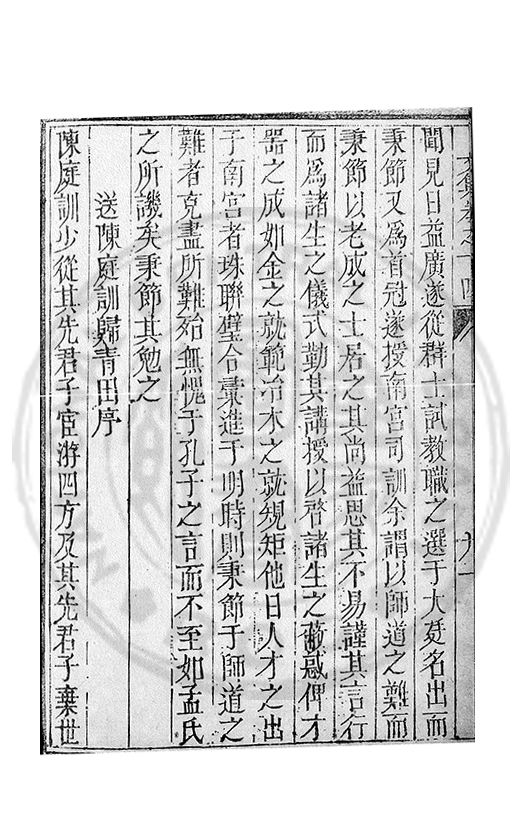 聞見日益廣遂從群士試教職之選于大廷名出而
秉節又爲首冠遂授南宮司訓余謂以師道之難而
秉節以老成之士居之其尚益思其不易謹其言行
而爲諸生之儀式勤其講授以啓諸生之蔽惑俾才
器之成如金之就範冶木之就規矩他日人才之出
于南宮者珠聯璧合彙進于明時則秉節于師道之
難者克盡所難始無愧于孔子之言而不至如孟氏
之所譏矣秉節其勉之
送陳庭訓歸青田序
陳庭訓少從其先君子宦游四方及其先君子棄世